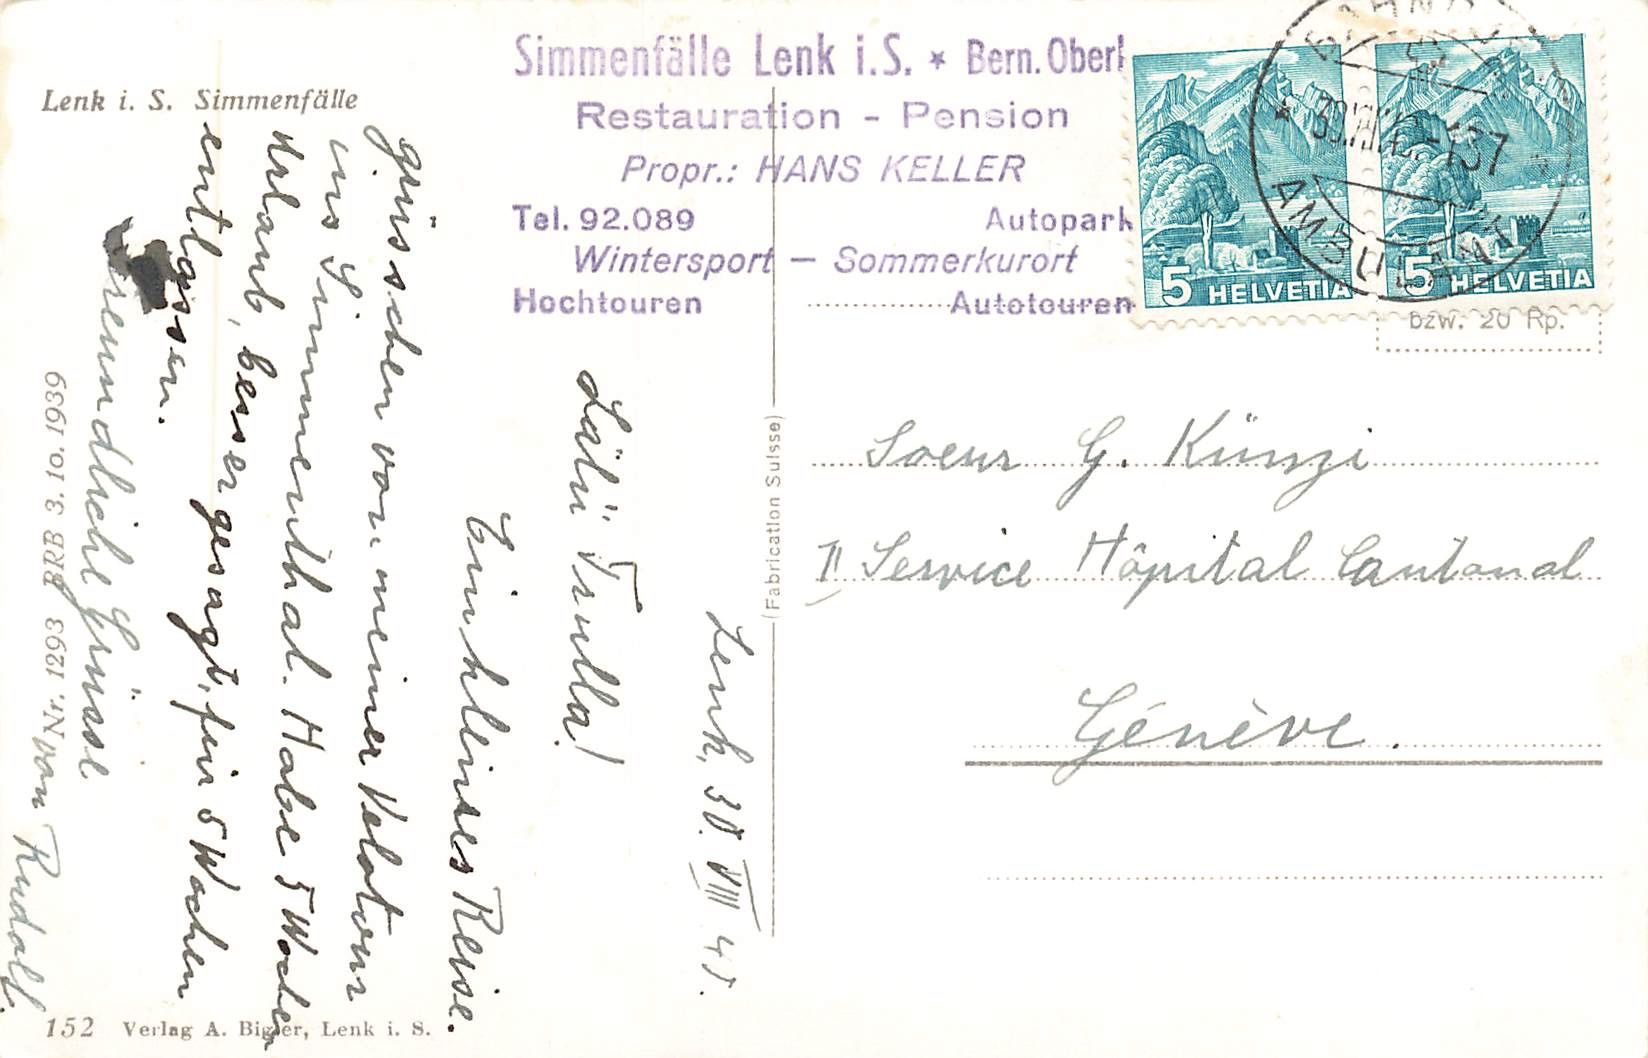 Lenk i. S. Simmenfälle
Simmenfälle Lenk i.S. * Bern. Oberl
Restauration - Pension
Propr.: HANS KELLER
Tel. 92.089 Autopark
Wintersport — Sommerkurort
Hochtouren Autotouren
5 HELVETIA
5 HELVETIA
AMBULANT
bzw. 20 Rp.
Lenk, 30. VIII 40.
Lälü Trulla!
Ein kleines Reise.
grüsschen von meiner Velotour
ins Simmenthal. Habe 5 Wochen
Urlaub, besser gesagt, für 5 Wochen
entlassen.
Freundliche Grüsse
von Rudolf.
Nr. 1293 BRB 3.10.1939
(Fabrication Suisse)
Soeur G. Künzi
II Service Hôpital Cantonal
Génève.
152 Verlag A. Bigler, Lenk i. S.